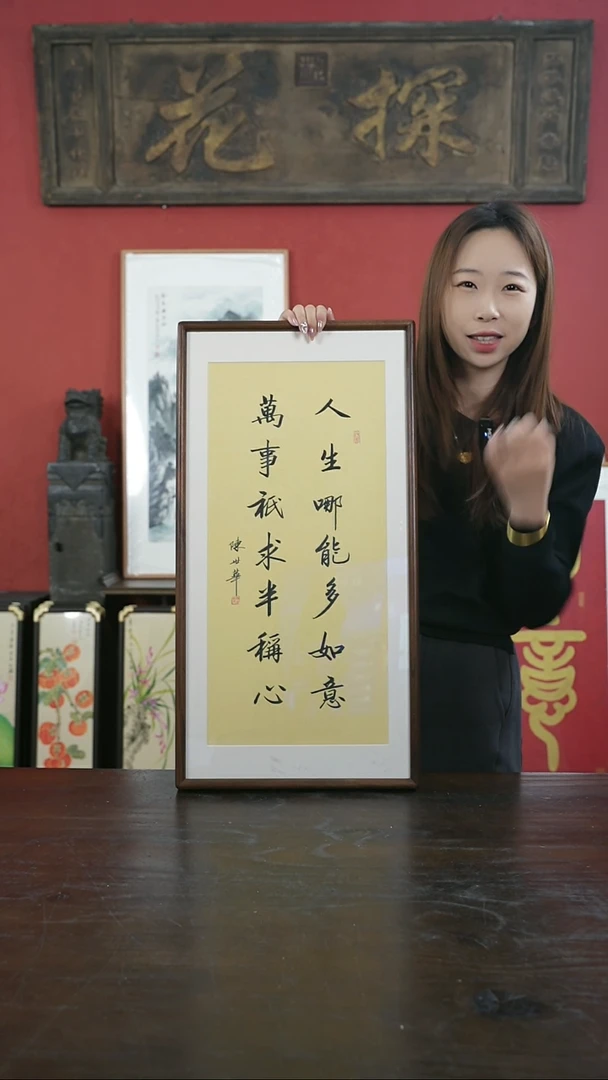 探花
人生哪能多如意
萬事祇求半稱心
陳世華
意